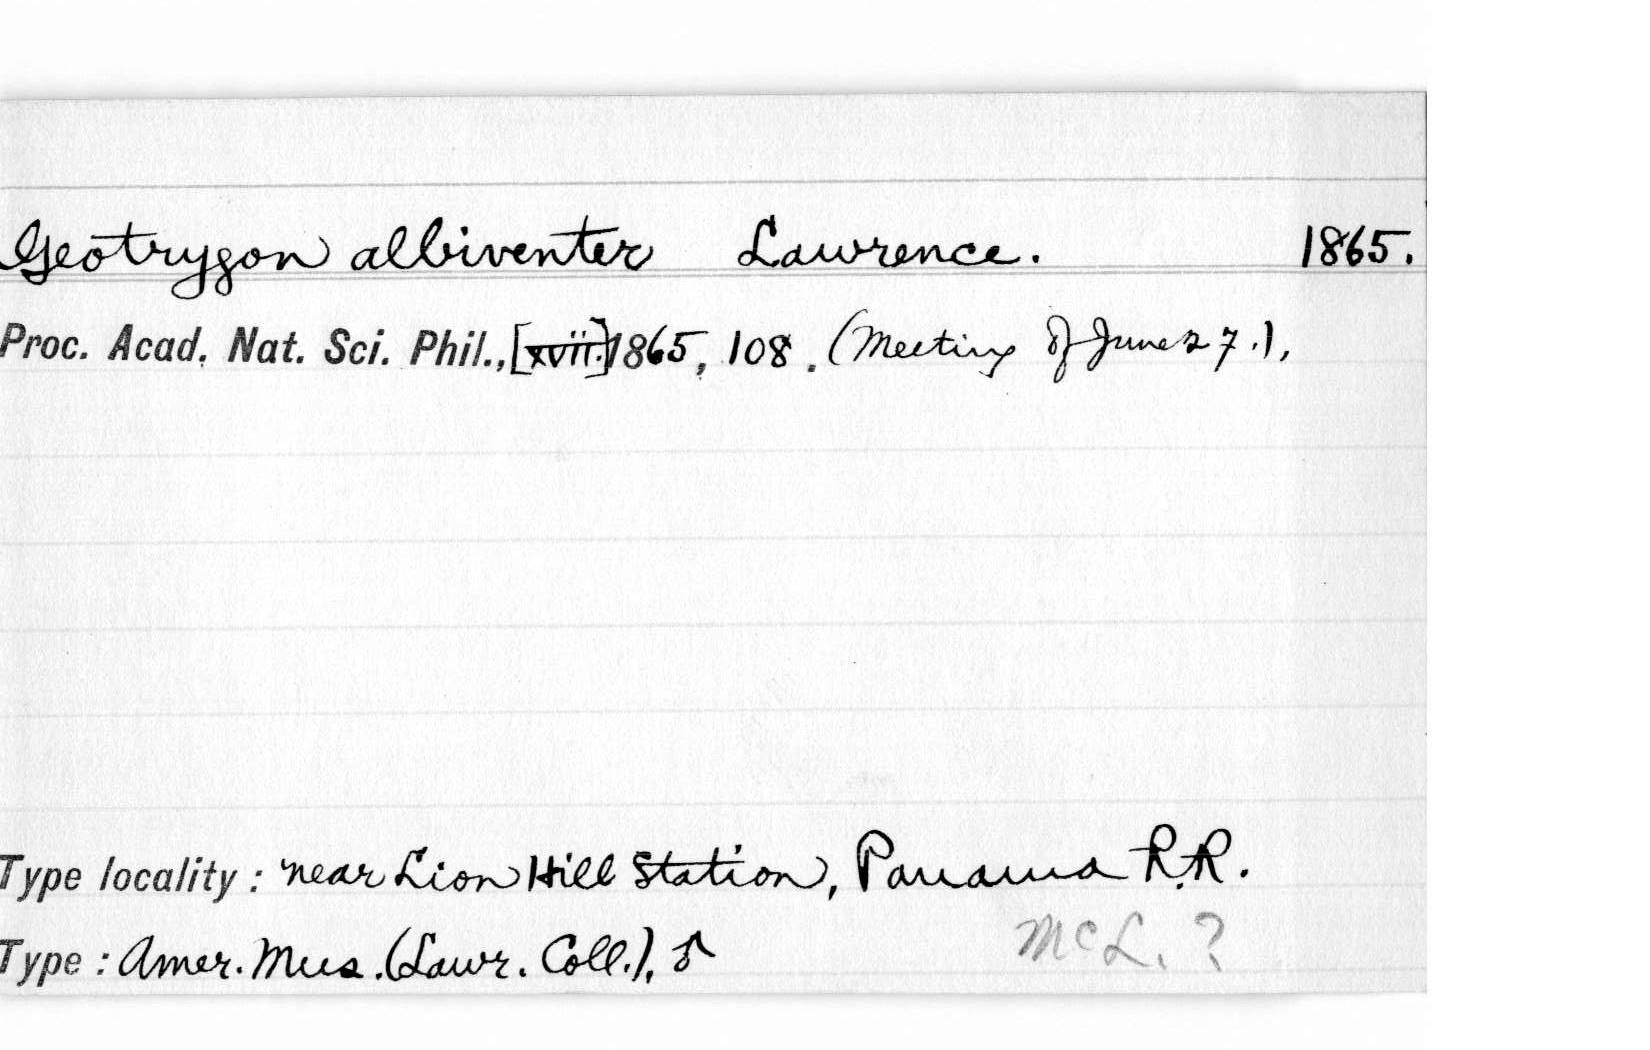 Geotrygon albiventer Lawrence. 1865.
Proc. Acad. Nat. Sci. Phil., [xvii.] 1865, 108. (Meeting of June 27.),
Type locality: near Lion Hill Station, Panama R.R.
Type: Amer. Mus. (Lawr. Coll.), ♂
McL. ?